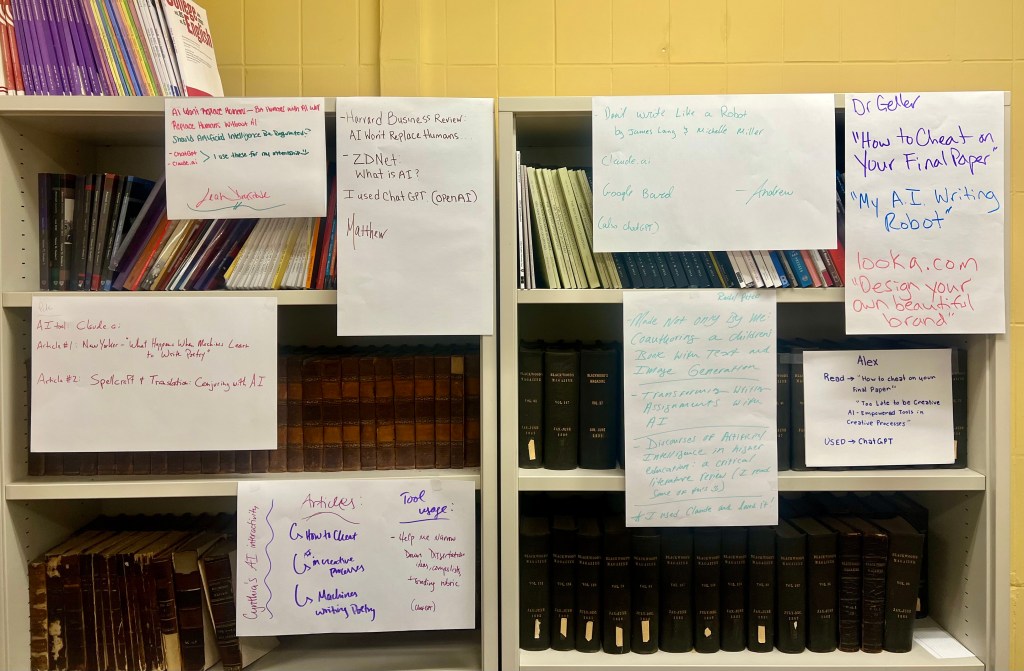 College
English
AI Won't Replace Humans – But Humans with AI Will
Replace Humans Without AI
Should Artificial Intelligence Be Regulated?
- ChatGPT
- Claude.ai
> I use these for my
- Harvard Business Review:
AI Won't Replace Humans
- ZDNet:
What is AI?
I used ChatGPT (OPENAI)
Matthew
- Don't Write Like a Robot
by James Lang & Michelle Miller
Claude.ai
Google Board
(also chatGPT)
- Andrew
Dr Geller
"How to Cheat on
Your Final Paper"
"My A.I. Writing
Robot"
looka.com
"Design your
own beautiful
brand"
AI tool: Claude.ai
Article #1: New Yorker - "What Happens When Machines Learn
to Write Poetry"
Article #2: Spellcraft & Translation: Conjuring with AI
- Made Not only By Me:
Coauthoring a Children's
Book with Text and
Image Generation
- Transforming Writing
Assignments with
AI
- Discourses of Artificial
Intelligence in Higher
education: a critical
literature review (I read
some on this)
* I used Claude and love it!
Alex
Read → "How to cheat on your
Final Paper"
"Too Late to be Creative
AI-Empowered Tools in
Creative Processes"
USED → ChatGPT
Cynthia's AI interactivity
Articles:
↳ How to Cheat
↳ in creative
processes
↳ Machines
writing Poetry
Tool
usage:
- Help me narrow
Down Dissertation
ideas, comp lists
+ Grading rubric
BLACKWOOD'S
MAGAZINE
VOL.
JAN.-JUNE